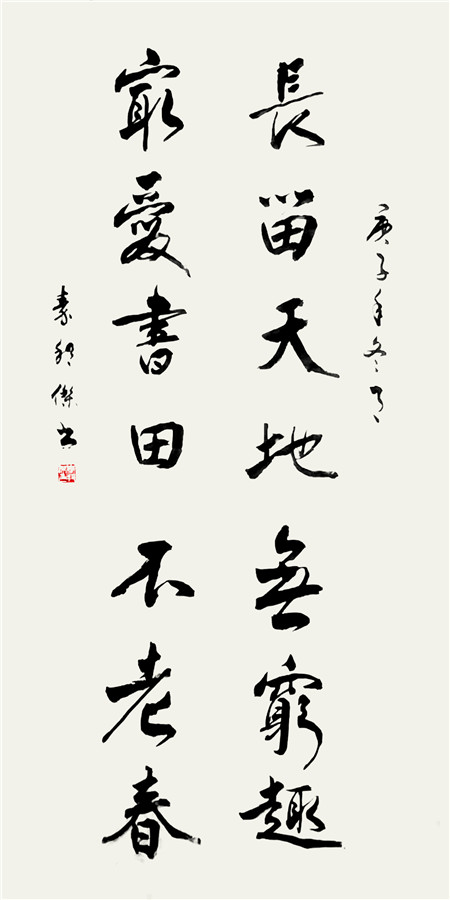 庚子年冬月
長留天地無窮趣
最愛書田不老春
傑书